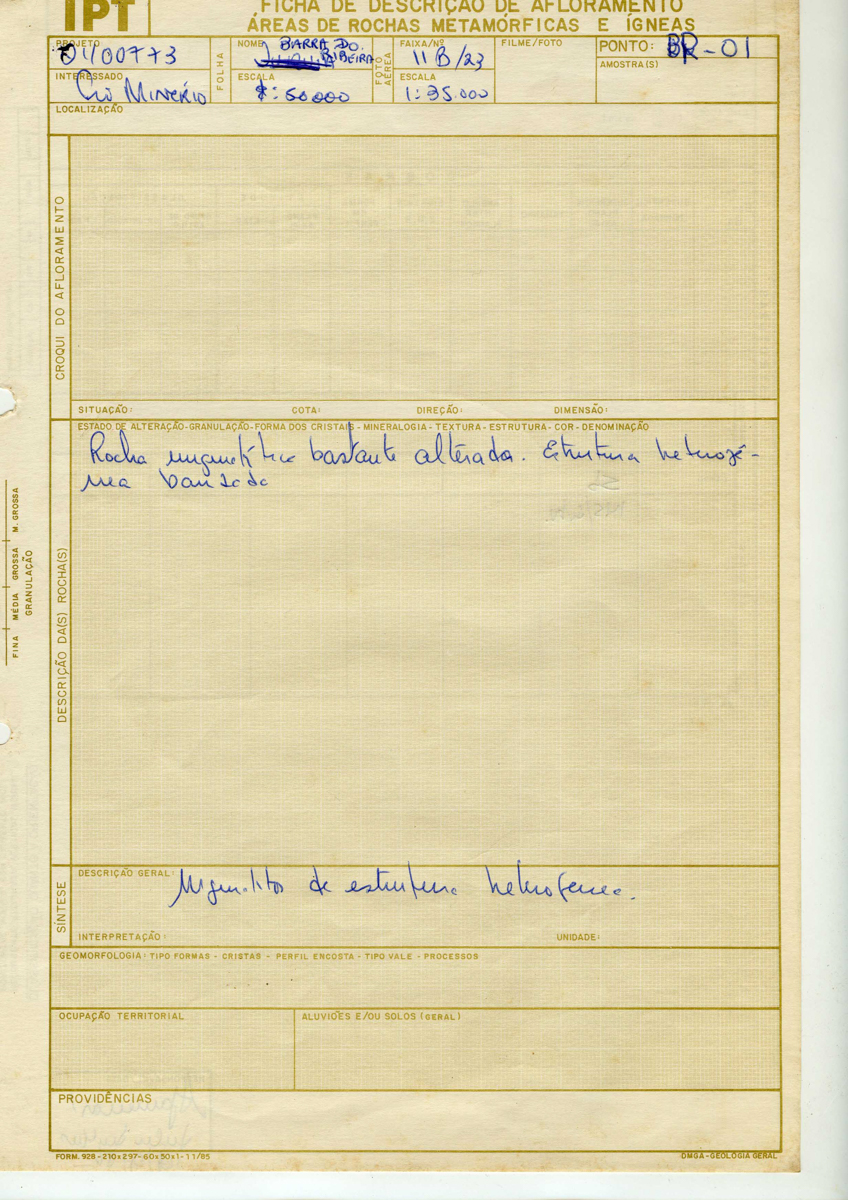 IPT
FICHA DE DESCRIÇÃO DE AFLORAMENTO
ÁREAS DE ROCHAS METAMÓRFICAS E ÍGNEAS
PROJETO
01100773
INTERESSADO
Rio Minério
LOCALIZAÇÃO
FOLHA
NOME
BARRA DO
RIBEIRA
ESCALA
1:50000
FOTO AÉREA
FAIXA/Nº
11B/23
ESCALA
1:35.000
FILME/FOTO
PONTO: BR-01
AMOSTRA(S)
CROQUI DO AFLORAMENTO
SITUAÇÃO: COTA: DIREÇÃO: DIMENSÃO:
ESTADO DE ALTERAÇÃO-GRANULAÇÃO-FORMA DOS CRISTAIS-MINERALOGIA-TEXTURA-ESTRUTURA-COR-DENOMINAÇÃO
Rocha migmatítica bastante alterada. Estrutura heterogê-
nea bandada
DESCRIÇÃO DA(S) ROCHA(S)
FINA MÉDIA GROSSA M. GROSSA
GRANULAÇÃO
SÍNTESE
DESCRIÇÃO GERAL:
Migmatitos de estrutura heterogenea.
INTERPRETAÇÃO: UNIDADE:
GEOMORFOLOGIA: TIPO FORMAS - CRISTAS - PERFIL ENCOSTA - TIPO VALE - PROCESSOS
OCUPAÇÃO TERRITORIAL
ALUVIÕES E/OU SOLOS (GERAL)
PROVIDÊNCIAS
FORM. 928-210x297-60x50x1-11/85
DMGA-GEOLOGIA GERAL